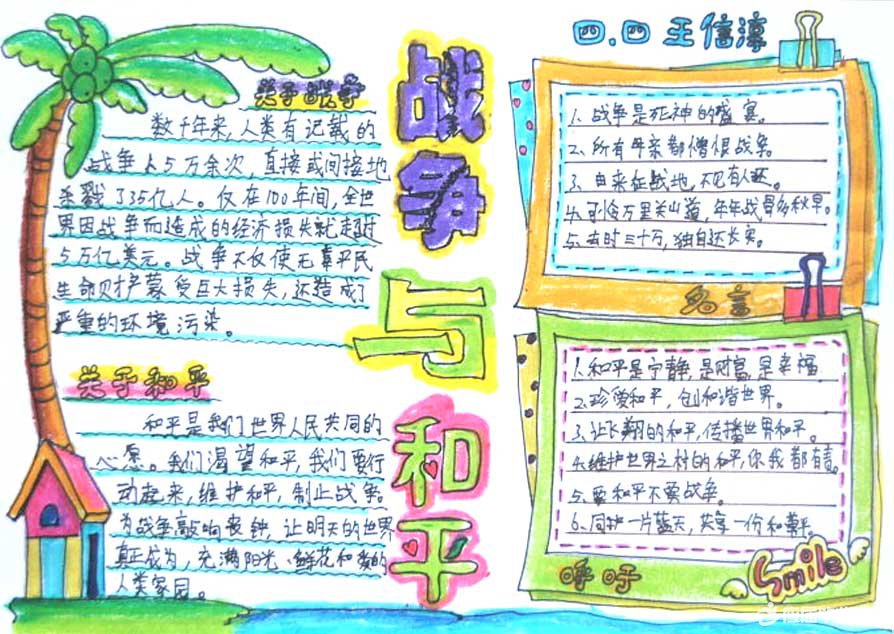 战争与和平
四.四 王信淳
关于战争
数千年来,人类有记载的
战争卜5万余次,直接或间接地
杀戮了35亿人。仅在100年间,全世
界因战争而造成的经济损失就走过
5万亿美元。战争不仅使无辜平民
生命财产蒙受巨大损失,还造成了
严重的环境污染。
关于和平
和平是我们世界人民共同的
心愿。我们渴望和平,我们要行
动起来,维护和平,制止战争。
为战争敲响丧钟,让明天的世界
真正成为,充满阳光、鲜花和爱的
人类家园。
1、战争是死神的盛宴。
2、所有母亲都憎恨战争。
3、由来征战地,不见有人还。
4、可怜万里关山道,年年战骨多秋草。
5、去时三十万,独自还长安。
名言
1、和平是宁静,是财富,是幸福
2、珍爱和平,创和谐世界。
3、让飞翔的和平,传播世界和平。
4、维护世界之村的和平,你我都有责。
5、要和平不要战争。
6、同护一片蓝天,共享一份和平。
呼吁
Smile